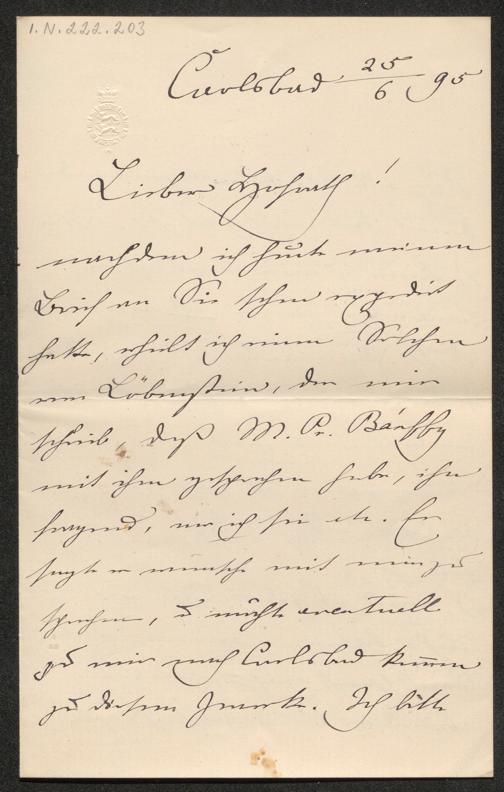 I.N. 222.203
Carlsbad 25/6 95
Lieber Hofrath!
nachdem ich heute meinen
Brief an Sie schon expedirt
hatte, erhielt ich einen Solchen
von Löbenstein, der mir
schrieb, daß M. Pr. Bánffy
mit ihm gesprochen habe, ihn
fragend, wo ich sei etc. Er
sagte er wünsche mit mir zu
sprechen, u möchte eventuell
zu mir nach Carlsbad kommen
zu diesem Zwecke. Ich bitte